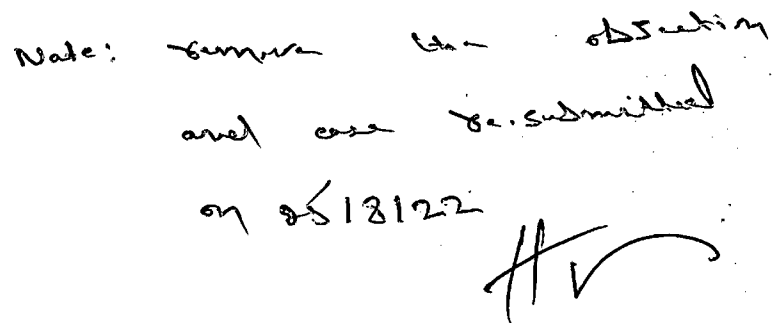 Note: remove the objection
and case re.submitted
on 05/8/22